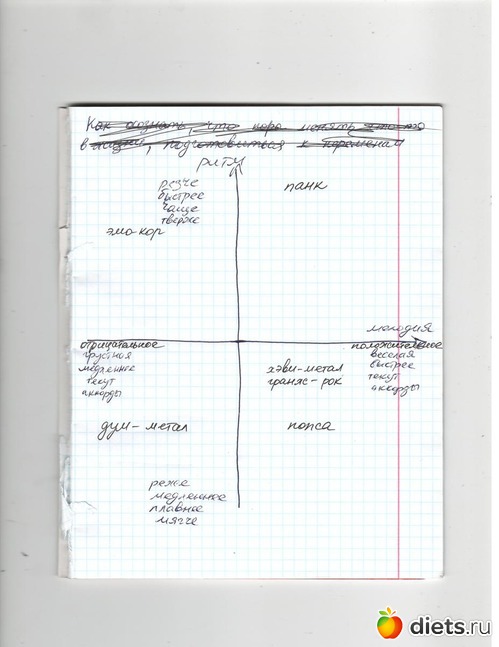 Как осознать, что пора менять что-то
в жизни, подготовиться к переменам
ритм
резче
быстрее
чаще
тверже
панк
эмо-кор
мелодия
отрицательное
грустная
медленнее
текут
аккорды
положительное
веселая
быстрее
текут
аккорды
хэви-метал
гранж-рок
дум-метал
попса
реже
медленное
плавное
мягче
diets.ru